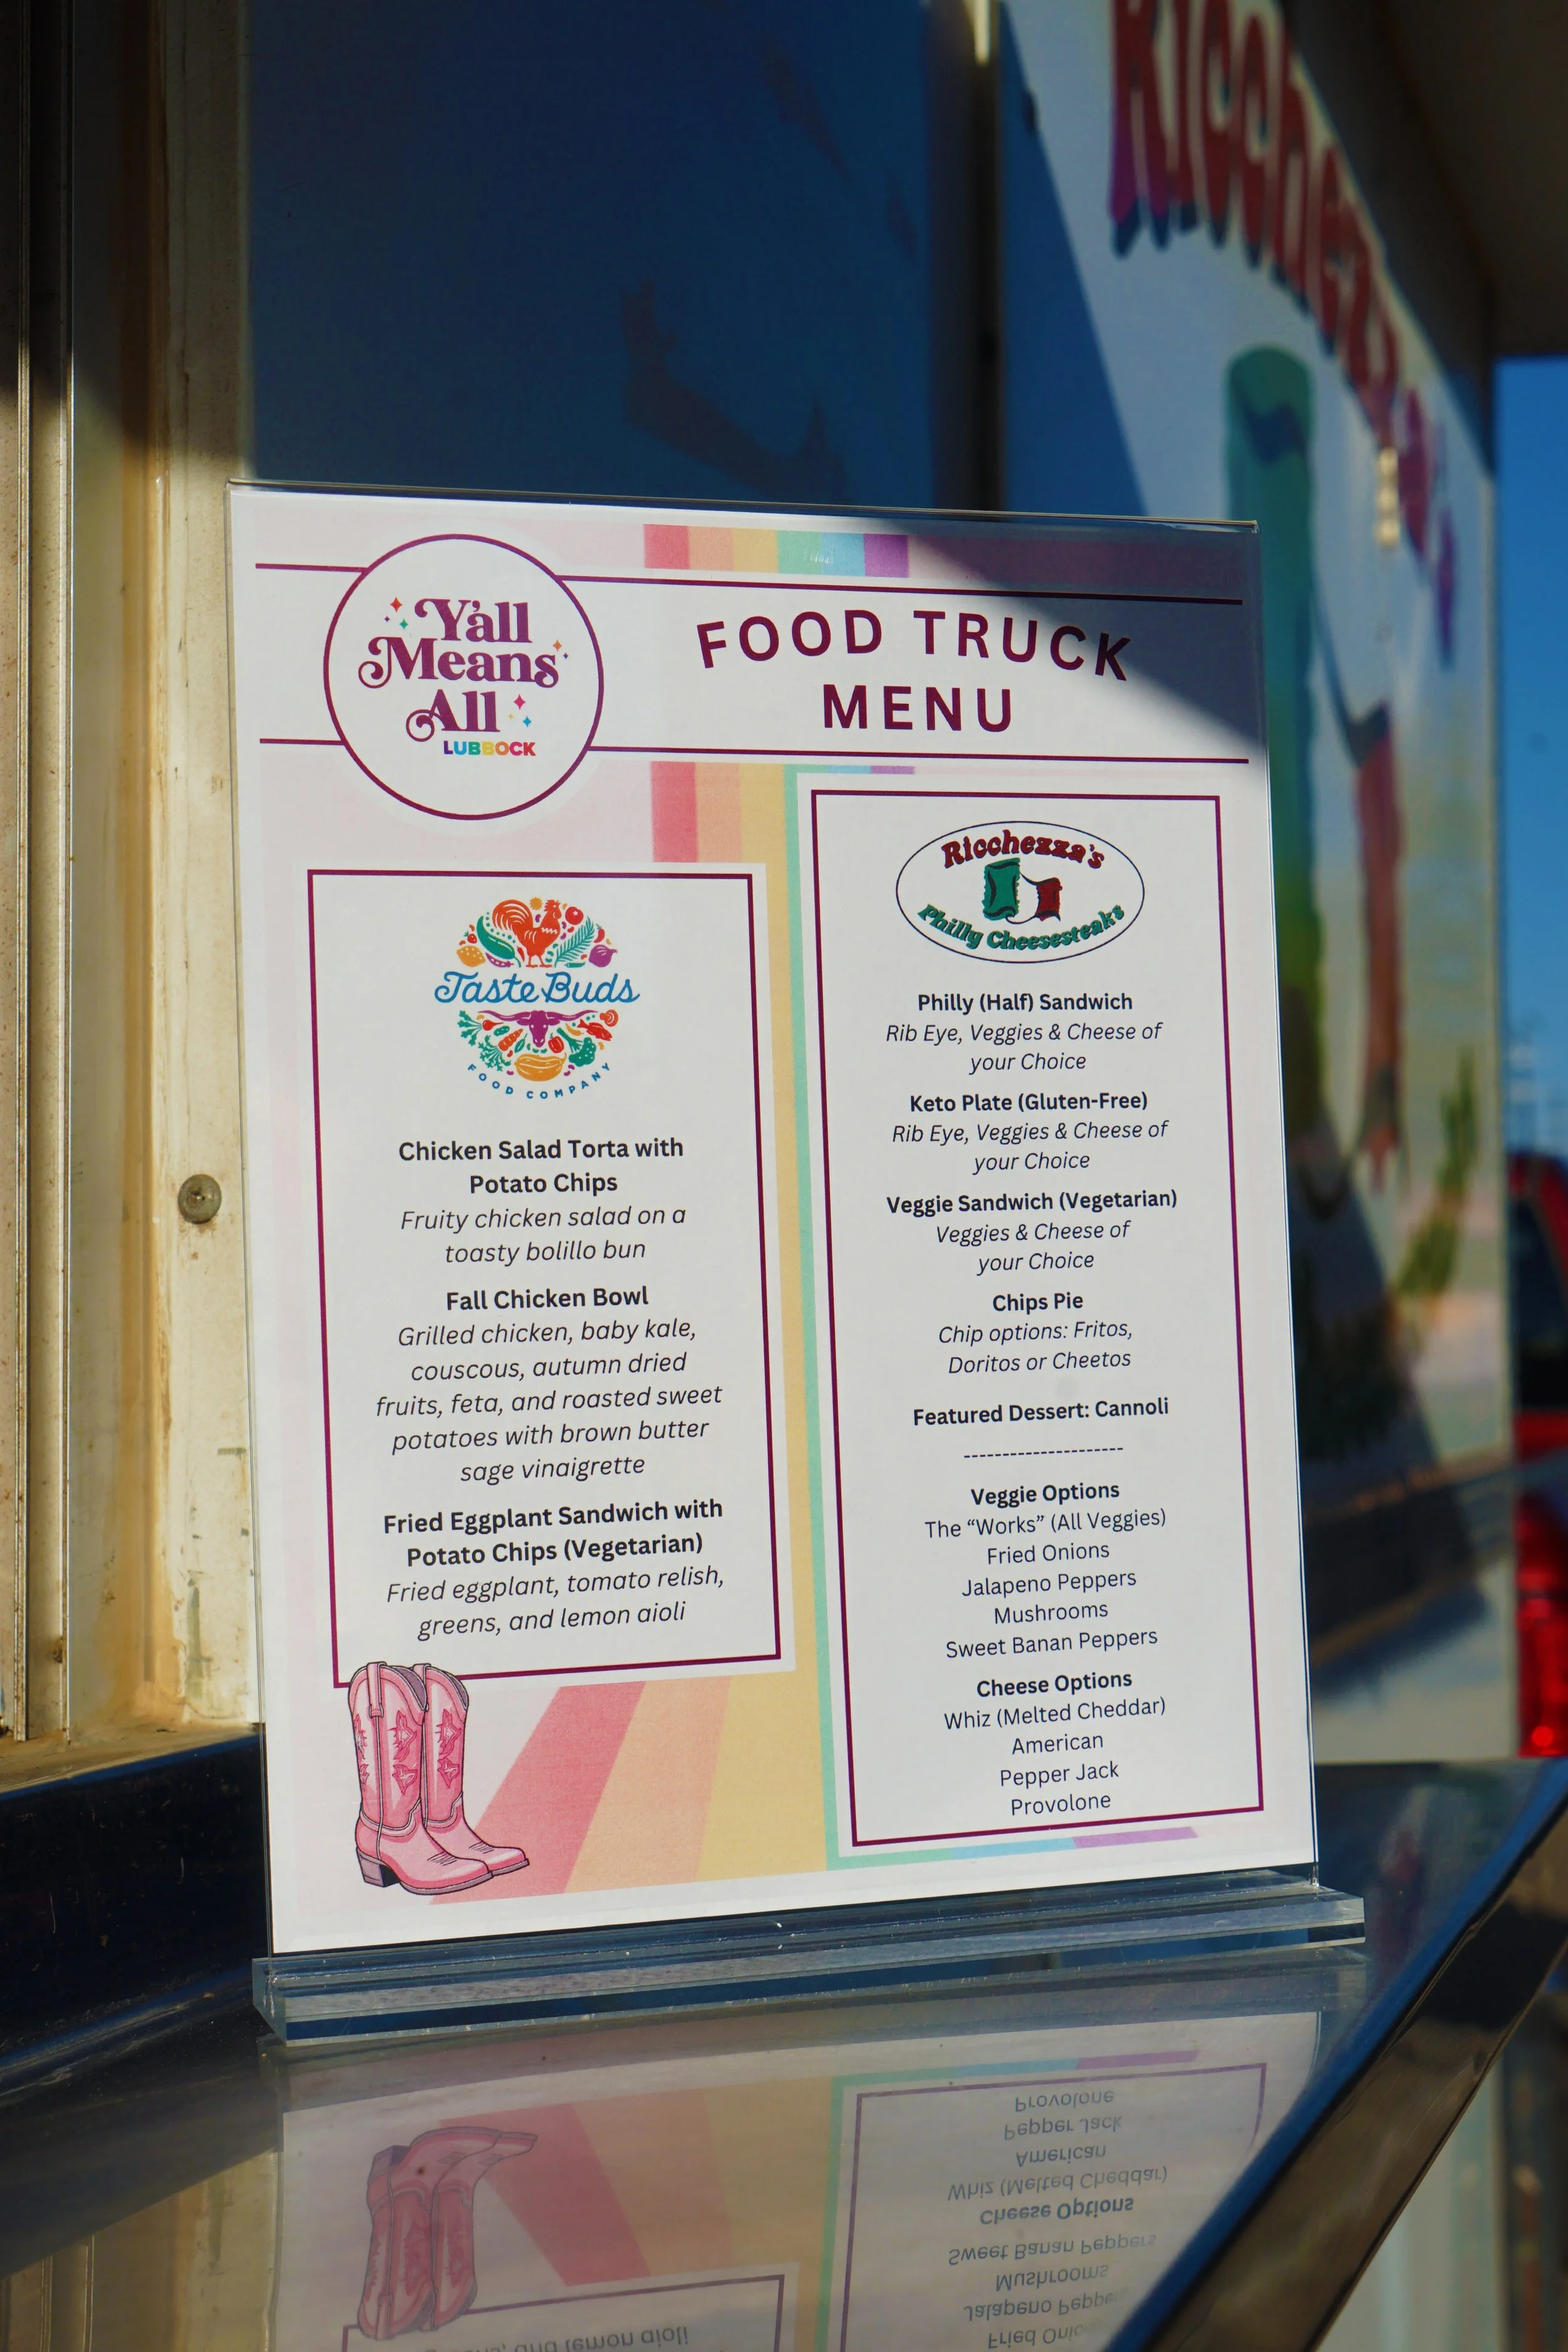 Ricchezza's
Y'all
Means
All
LUBBOCK
FOOD TRUCK
MENU
Taste Buds
FOOD COMPANY
Chicken Salad Torta with
Potato Chips
Fruity chicken salad on a
toasty bolillo bun
Fall Chicken Bowl
Grilled chicken, baby kale,
couscous, autumn dried
fruits, feta, and roasted sweet
potatoes with brown butter
sage vinaigrette
Fried Eggplant Sandwich with
Potato Chips (Vegetarian)
Fried eggplant, tomato relish,
greens, and lemon aioli
Ricchezza's
Philly Cheesesteaks
Philly (Half) Sandwich
Rib Eye, Veggies & Cheese of
your Choice
Keto Plate (Gluten-Free)
Rib Eye, Veggies & Cheese of
your Choice
Veggie Sandwich (Vegetarian)
Veggies & Cheese of
your Choice
Chips Pie
Chip options: Fritos,
Doritos or Cheetos
Featured Dessert: Cannoli
---------------------
Veggie Options
The “Works” (All Veggies)
Fried Onions
Jalapeno Peppers
Mushrooms
Sweet Banan Peppers
Cheese Options
Whiz (Melted Cheddar)
American
Pepper Jack
Provolone
Provolone
Pepper Jack
American
Whiz (Melted Cheddar)
Cheese Options
Sweet Banan Peppers
Mushrooms
Jalapeno Peppe
Fried Onio
and lemon aioli